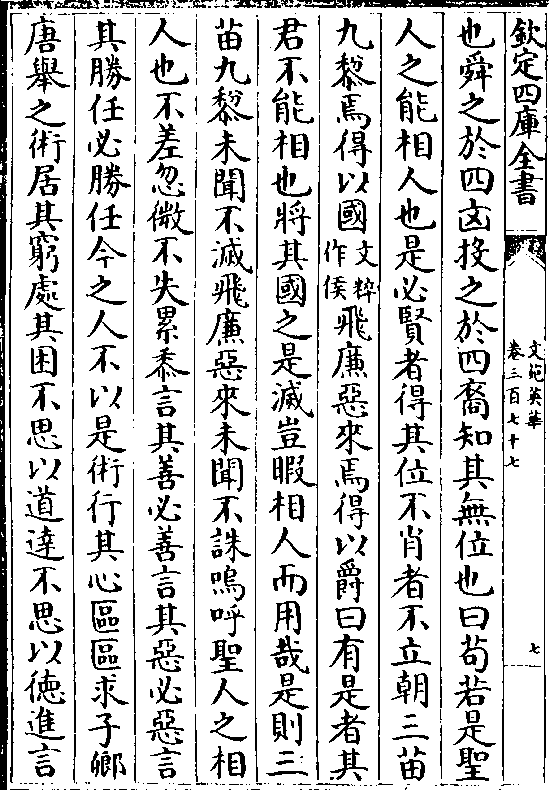 欽定四庫全書
文苑英華
卷三百七十七
七
也舜之於四凶投之於四裔知其無位也曰苟若是聖
人之能相人也是必賢者得其位不肖者不立朝三苗
九黎焉得以國文粹作侯飛廉惡來焉得以爵曰有是者其
君不能相也將其國之是滅豈暇相人而用哉是則三
苗九黎未聞不滅飛廉惡來未聞不誅嗚呼聖人之相
人也不差忽微不失累黍言其善必善言其惡必惡言
其勝任必勝任今之人不以是術行其心區區求子卿
唐舉之術居其窮處其困不思以道達不思以徳進言